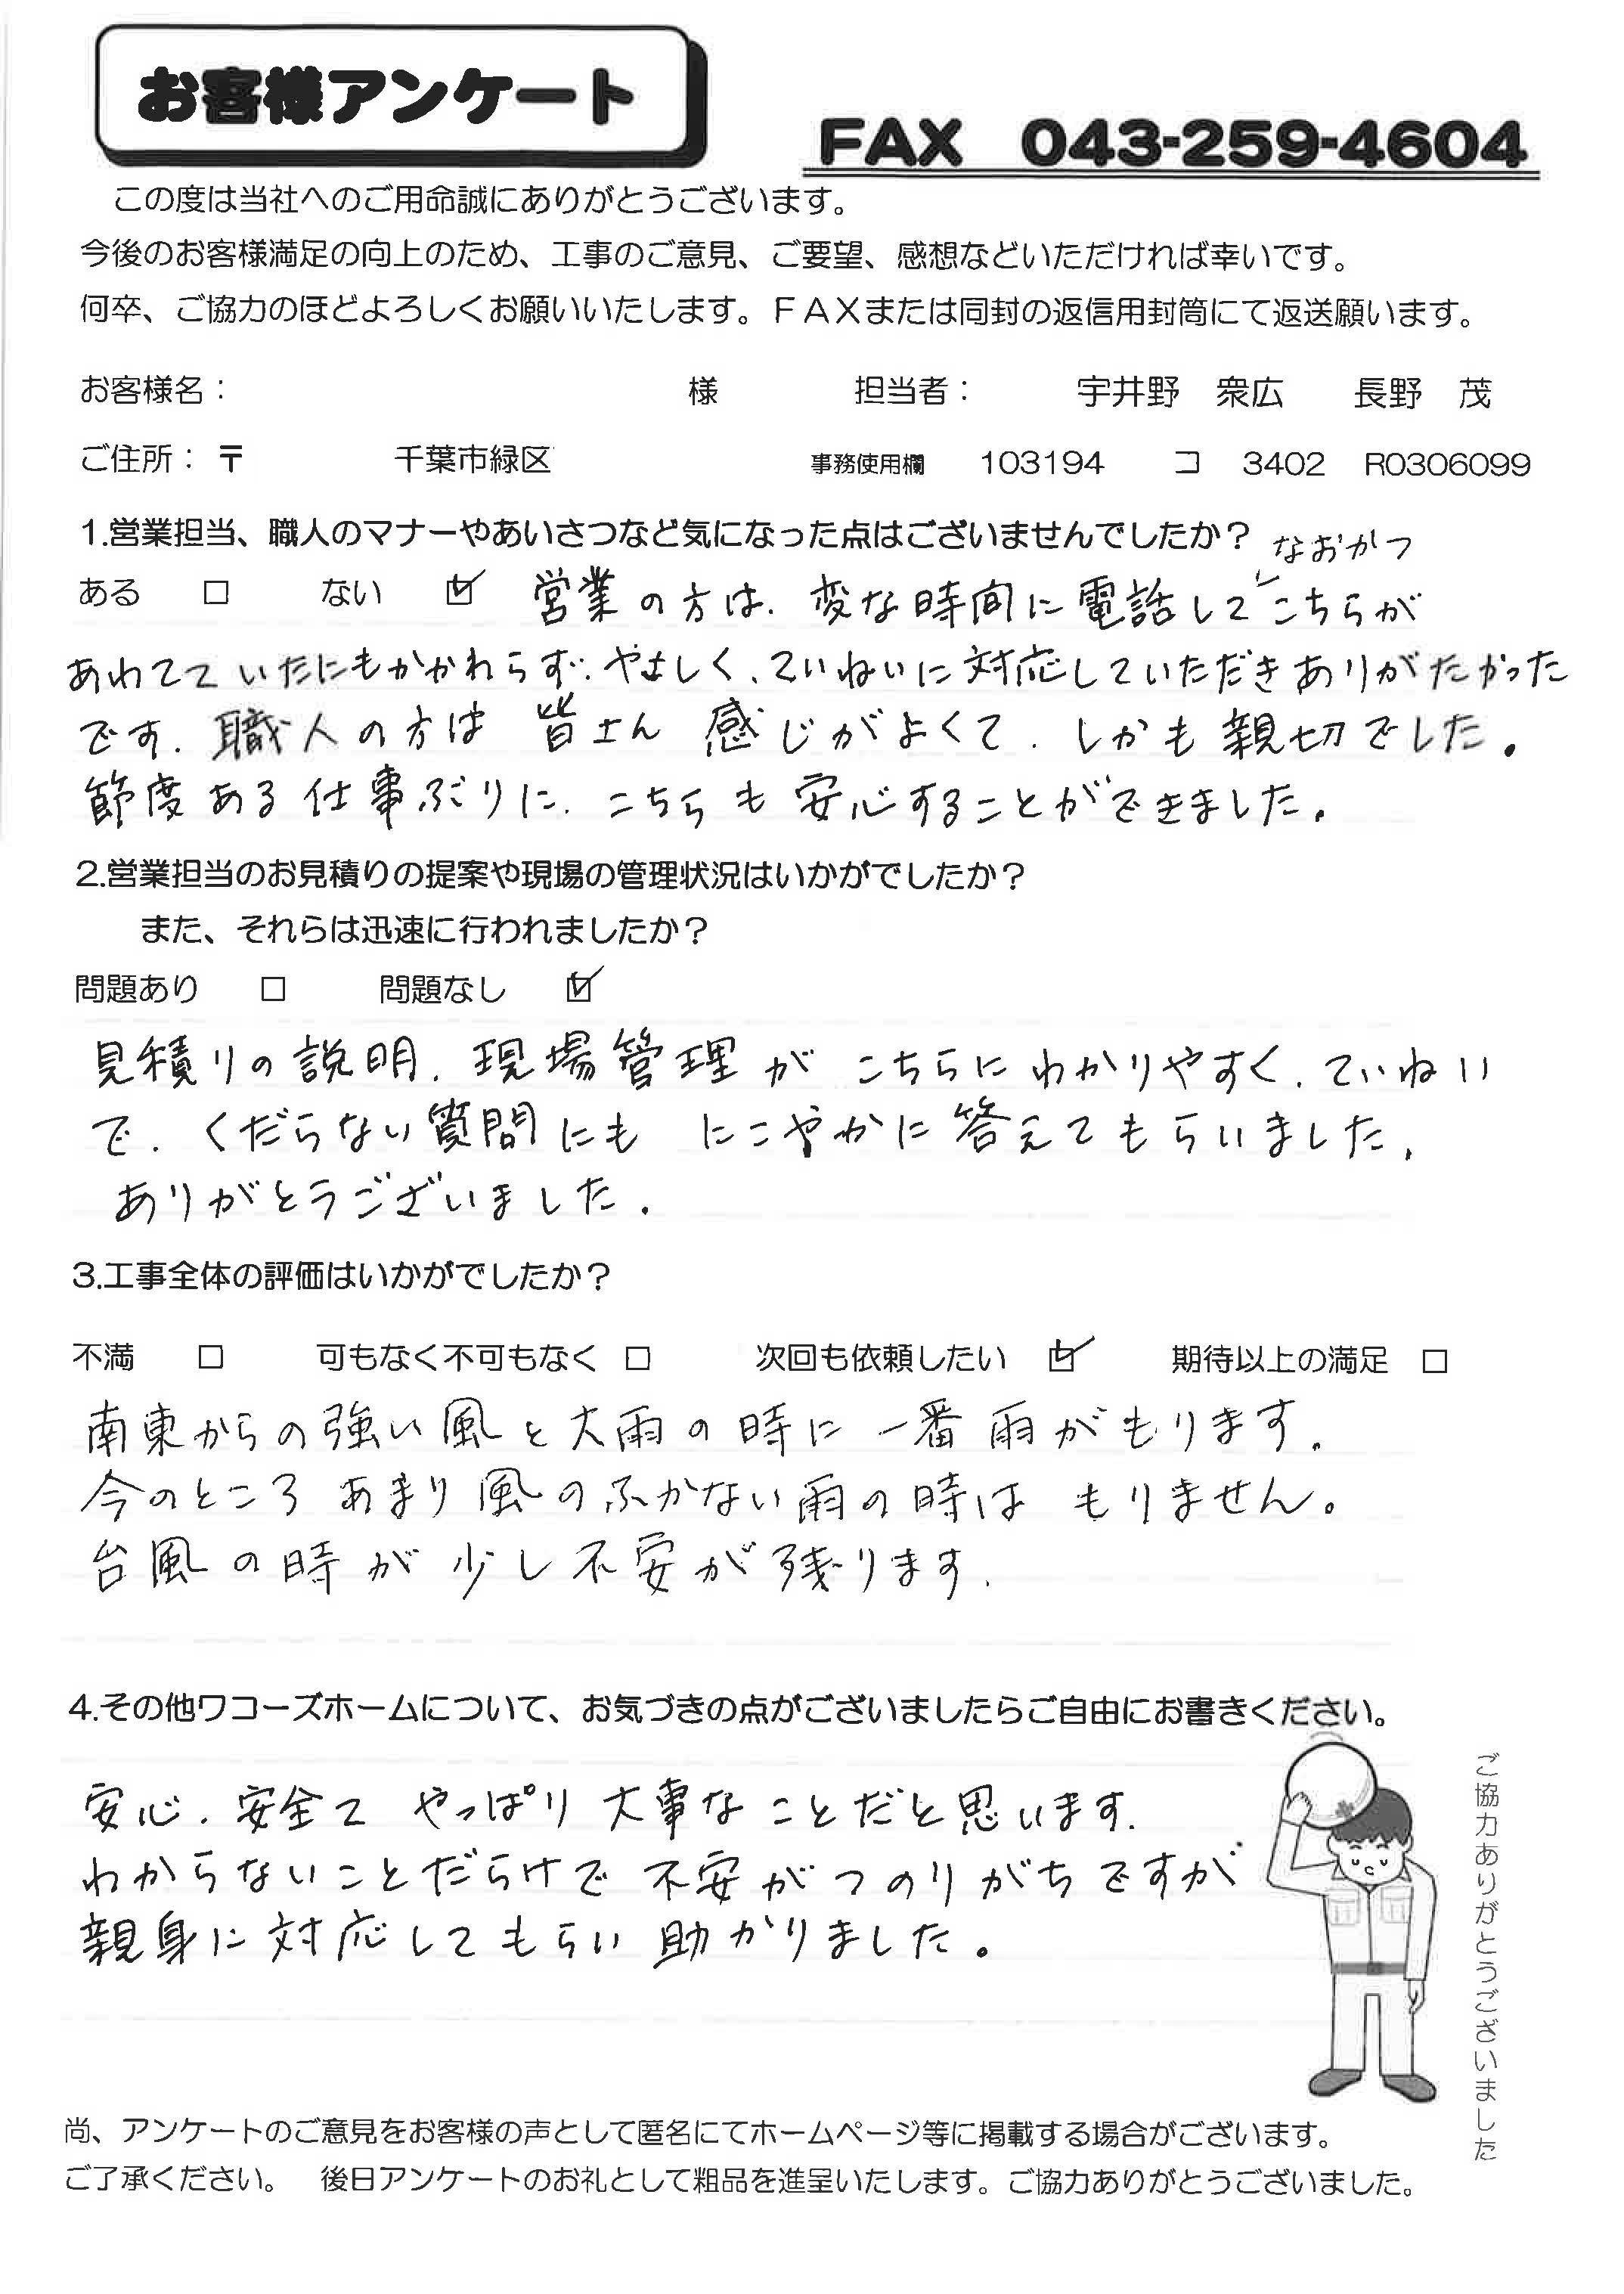 お客様アンケート
FAX　043-259-4604
この度は当社へのご用命誠にありがとうございます。
今後のお客様満足の向上のため、工事のご意見、ご要望、感想などいただければ幸いです。
何卒、ご協力のほどよろしくお願いいたします。ＦＡＸまたは同封の返信用封筒にて返送願います。
お客様名：　様　担当者：　宇井野　衆広　長野　茂
ご住所：〒　千葉市緑区　事務使用欄　103194　コ　3402　R0306099
1.営業担当、職人のマナーやあいさつなど気になった点はございませんでしたか？
なおかつ
ある　□　ない　☑　営業の方は、変な時間に電話してこちらが
あわてていたにもかかわらず、やさしく、ていねいに対応していただきありがたかった
です。職人の方は皆さん感じがよくて、しかも親切でした。
節度ある仕事ぶりに、こちらも安心することができました。
2.営業担当のお見積りの提案や現場の管理状況はいかがでしたか？
また、それらは迅速に行われましたか？
問題あり　□　問題なし　☑
見積りの説明、現場管理がこちらにわかりやすく、ていねい
で、くだらない質問にもにこやかに答えてもらいました。
ありがとうございました。
3.工事全体の評価はいかがでしたか？
不満　□　可もなく不可もなく　□　次回も依頼したい　☑　期待以上の満足　□
南東からの強い風と大雨の時に一番雨がもります。
今のところあまり風のふかない雨の時はもりません。
台風の時が少し不安が残ります。
4.その他ワコーズホームについて、お気づきの点がございましたらご自由にお書きください。
安心、安全てやっぱり大事なことだと思います。
わからないことだらけで不安がつのりがちですが
親身に対応してもらい助かりました。
ご協力ありがとうございました
尚、アンケートのご意見をお客様の声として匿名にてホームページ等に掲載する場合がございます。
ご了承ください。　後日アンケートのお礼として粗品を進呈いたします。ご協力ありがとうございました。